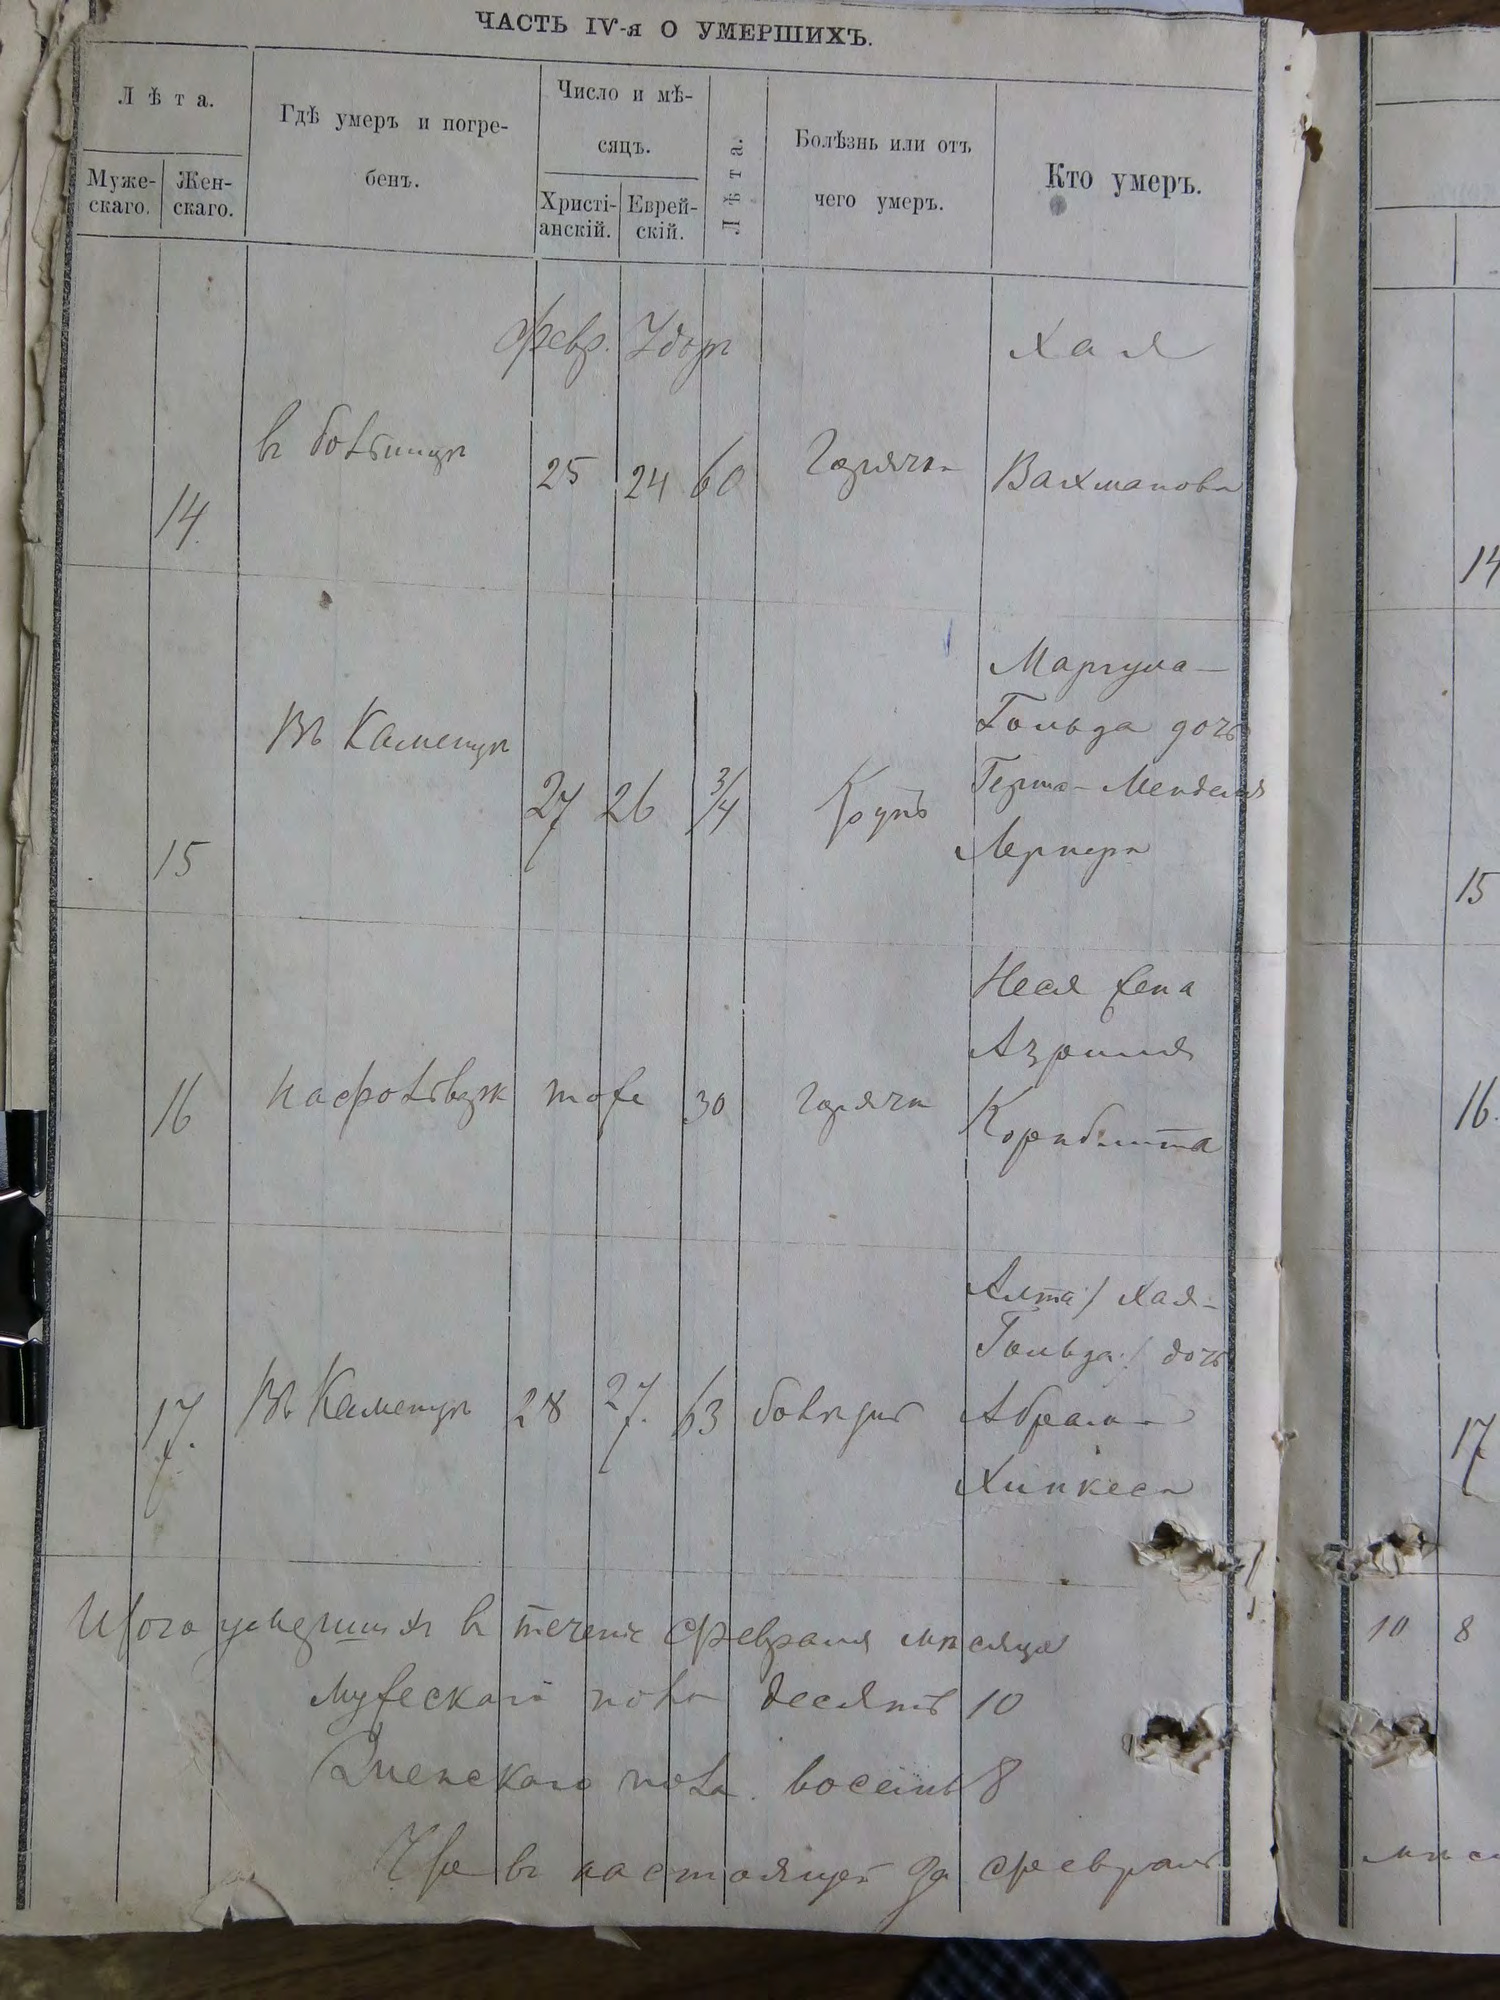 ЧАСТЬ IV-я О УМЕРШИХЪ.
Лѣта.
Муже-
скаго.
Жен-
скаго.
Гдѣ умеръ и погре-
бенъ.
Число и мѣ-
сяцъ.
Христі-
анскій.
Еврей-
скій.
Лѣта.
Болѣзнь или отъ
чего умеръ.
Кто умеръ.
февр. Удоръ
14.
в больницѣ
25 24 60
Горячка
Хая
Вахманова
15
Въ Каменцѣ
27 26 3/4
Крупъ
Маргула-
Гольда дочь
Герша-Менделя
Лернера
16
тоже 30
Горячк
Неся жена
Азриля
17.
Въ Каменцѣ 28 27. 63
Алта/ Хая-
Гольда:/ дочь
Абрама
Хинкеса
Итого умершихъ в течение февраля мѣсяца
мужескаго пола десять 10
Женскаго пола. восемь 8
Что в настоящей за февраль
14
15
16.
17
10 8